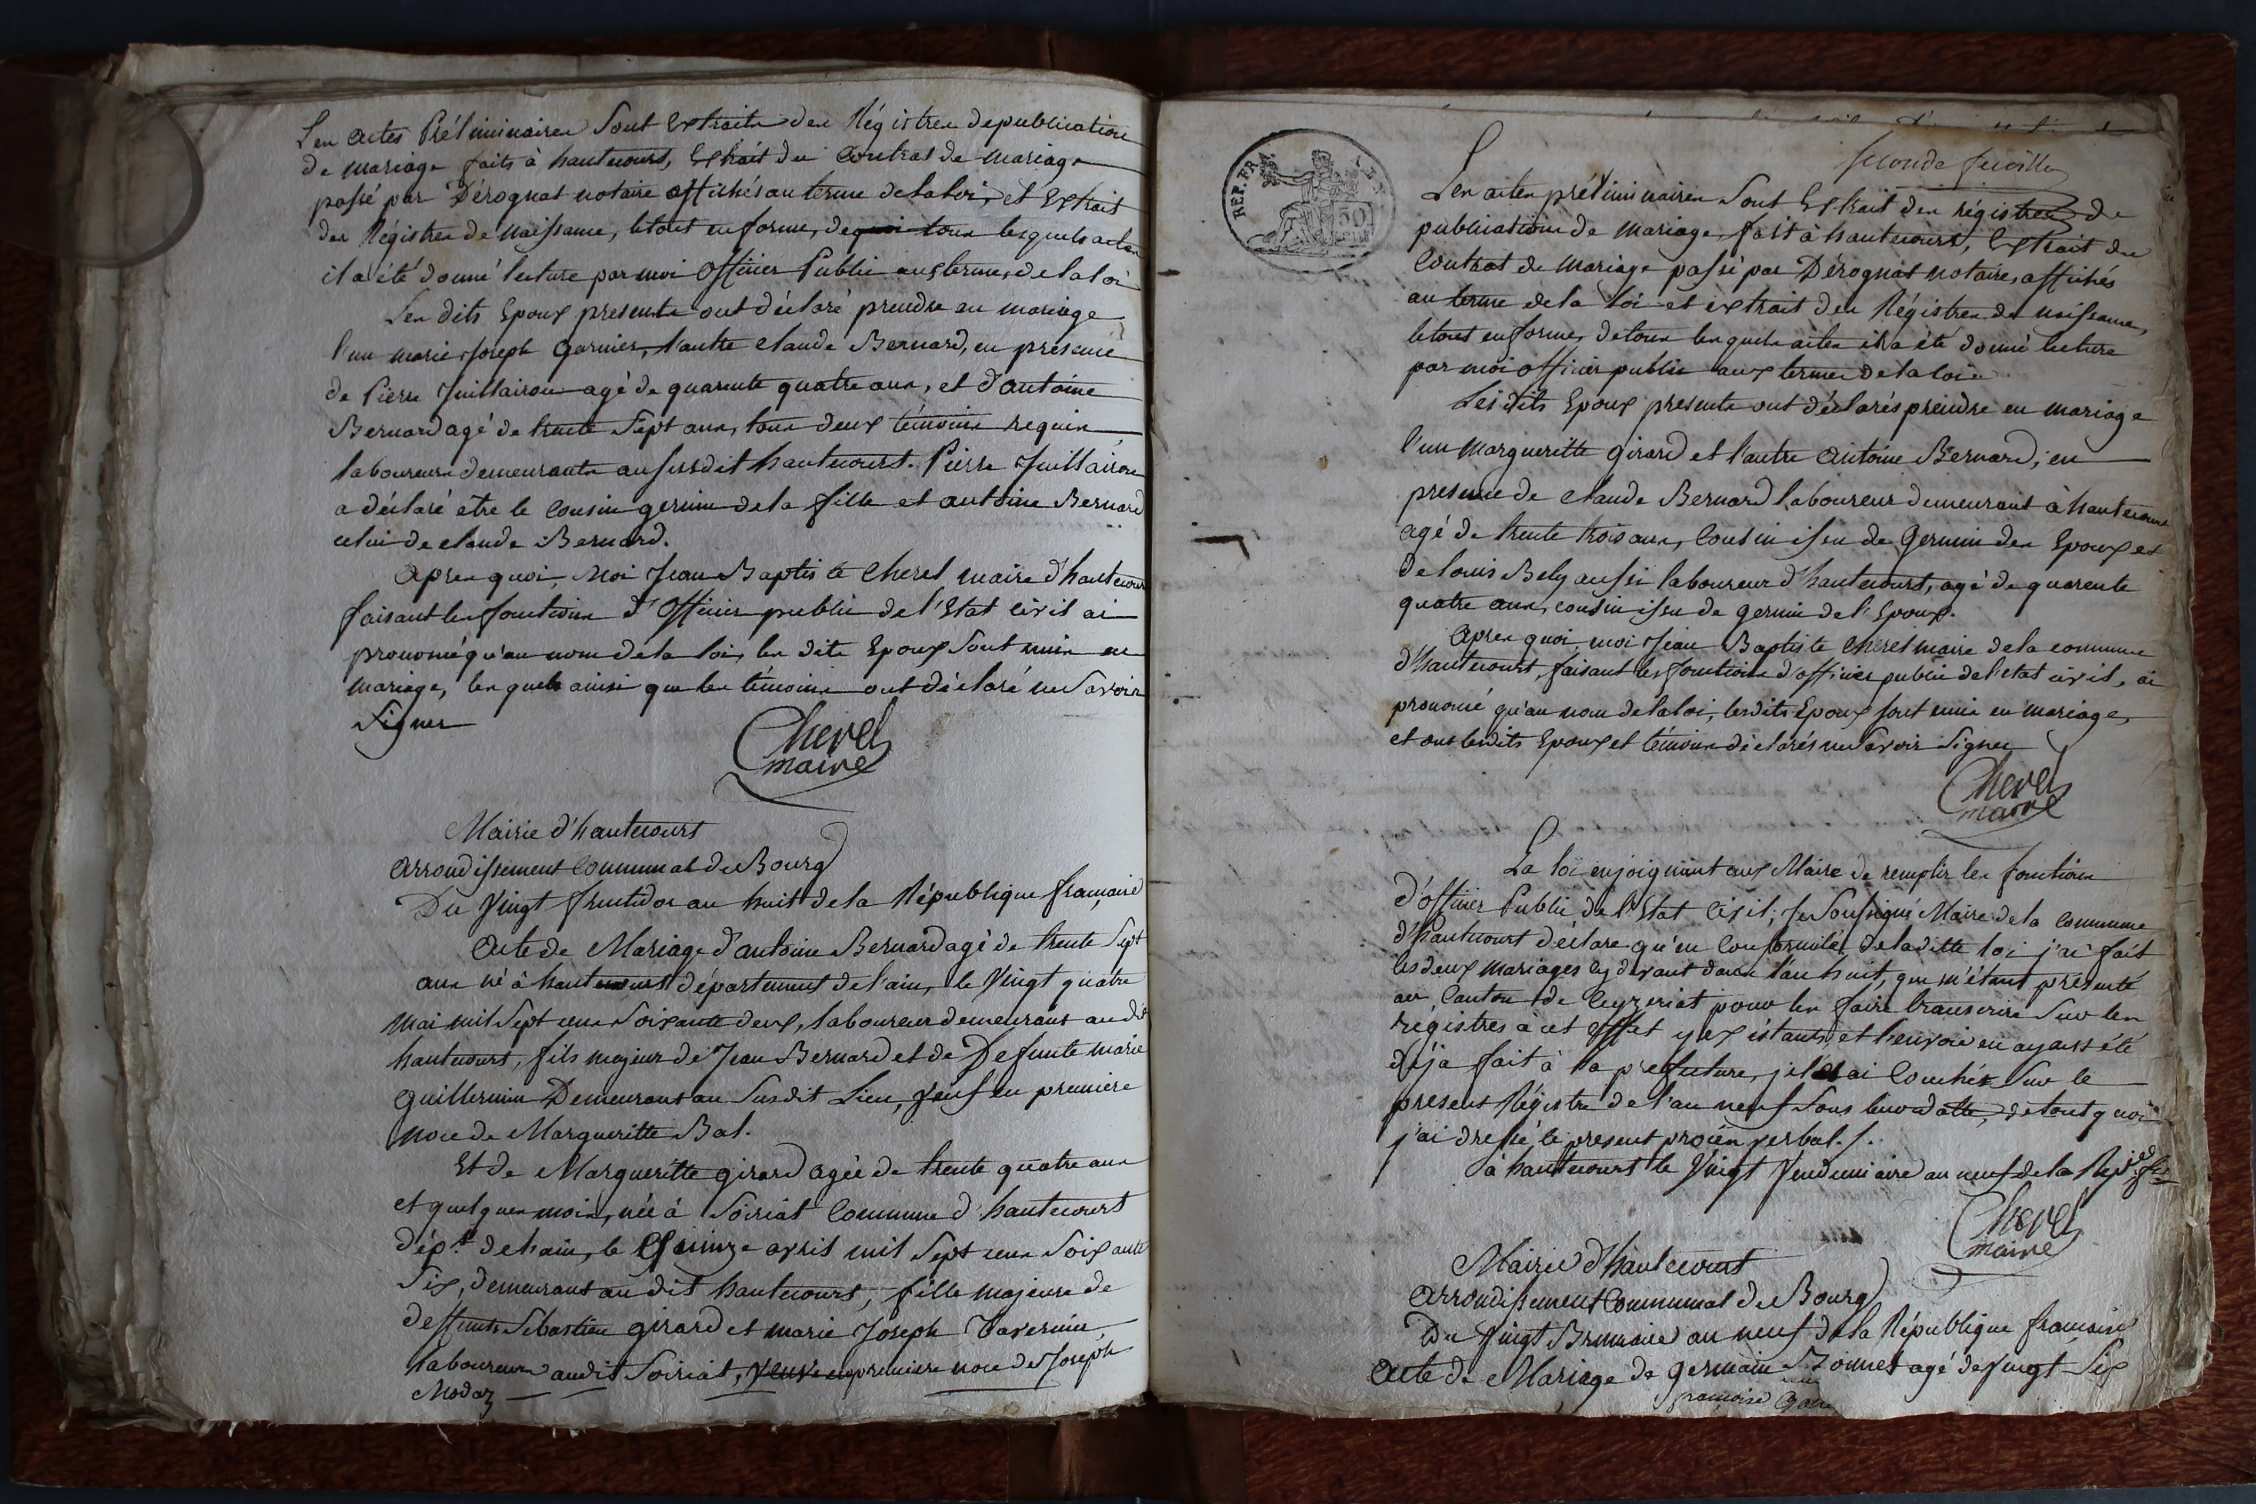 Les actes Préliminaires Sont Extraits des Régistres de publication
de mariage faits à hautecourt, Extrait du Contrat de mariage
passé par Dérognat notaire affichés au terme de la loi, et Extrait
des Régistres de naissance, le tout en forme, de quoi tous lesquels actes
il a été donné lecture par moi Officier Public aux termes de la loi
Les dits Epoux presents ont déclaré prendre en mariage
l'un marie Joseph Garnier, l'autre claude Bernard, en présence
de Pierre Juillairon agé de quarente quatre ans, et d'antoine
Bernard agé de trente Sept ans, tous deux témoins requis
laboureurs demeurants au susdit hautecourt. Pierre Juillairon
a déclaré être le Cousin germin de la fille et antoine Bernard
celui de claude Bernard.
Apres quoi, Moi Jean Baptiste Cherel maire d'hautecourt
faisant les fonctions d'Officier public de l'Etat civil ai
prononcé qu'au nom de la loi, les dits Epoux Sont unis en
mariage, les quels ainsi que les témoins ont déclaré ne Savoir
Signer
Cherel
maire
Mairie d'hautecourt
Arrondissement Communal de Bourg
Du Vingt fructidor an huit de la République française
Acte de Mariage d'antoine Bernard agé de trente Sept
ans né à hautecourt département de l'ain, le Vingt quatre
mai mil Sept cens Soixante deux, laboureur demeurant au dit
hautecourt, fils majeur de Jean Bernard et de Defunte marie
Guillermin Demeurant au Susdit Lieu, Veuf en premiere
noce de Margueritte Bal.
Et de Margueritte girard agée de trente quatre ans
et quelques mois, née à Soiriat Commune d'hautecourt
dép.t de l'ain, le Quinze avril mil Sept cens Soixante
Six, demeurant au dit hautecourt, fille majeure de
deffunts Sébastien girard et marie Joseph Tavernier,
laboureurs audit Soiriat, Veuve en premiere noce de Joseph
Modaz
REP. FRA.
50
seconde feuille
Les actes préliminaires Sont Extrait des régistres de
publication de mariage, fait à hautecourt, Extrait du
Contrat de mariage passé par Dérognat notaire, affichés
au terme de la loi et extrait des Régistres de naissance,
le tout en forme, de tous lesquels actes il a été donné lecture
par moi officier public aux termes de la loi.
Les dits Epoux presents ont déclarés prendre en mariage
l'un Margueritte girard et l'autre Antoine Bernard, en
presence de claude Bernard laboureur demeurant à hautecourt
agé de trente trois ans, Cousin issu de Germin des Epoux et
de louis Bely aussi laboureur d'hautecourt, agé de quarente
quatre ans, cousin issu de germin de l'Epoux.
Apres quoi, moi Jean Baptiste Cherel maire de la commune
d'hautecourt, faisant les fonctions d'officier public de l'etat civil, ai
prononcé qu'au nom de la loi, lesdits Epoux sont unis en mariage,
et ont lesdits Epoux et témoins déclarés ne Savoir Signer
Cherel
maire
La loi enjoignant aux Maire de remplir les fonctions
d'officier Public de l'Etat Civil; Je Soussigné Maire de la Commune
d'hautecourt déclare qu'en Conformité de la ditte loi j'ai fait
les deux mariages cy devant dans l'an huit, que m'étant présenté
au Canton de Ceyzeriat pour les faire transcrire Sur les
régistres à cet effet y existants, et l'envoi en ayant été
déja fait à la préfecture, je les ai Couchés Sur le
present Régistre de l'an neuf Sous leur datte, de tout quoi
j'ai dressé le present procès verbal./.
à hautecourt le Vingt Vendemiaire an neuf de la Rep.
Cherel
maire
Mairie d'hautecourt
Arrondissement Communal de Bourg
Du Vingt Brumaire an neuf de la République française
Acte de Mariage de germain agé de vingt Six